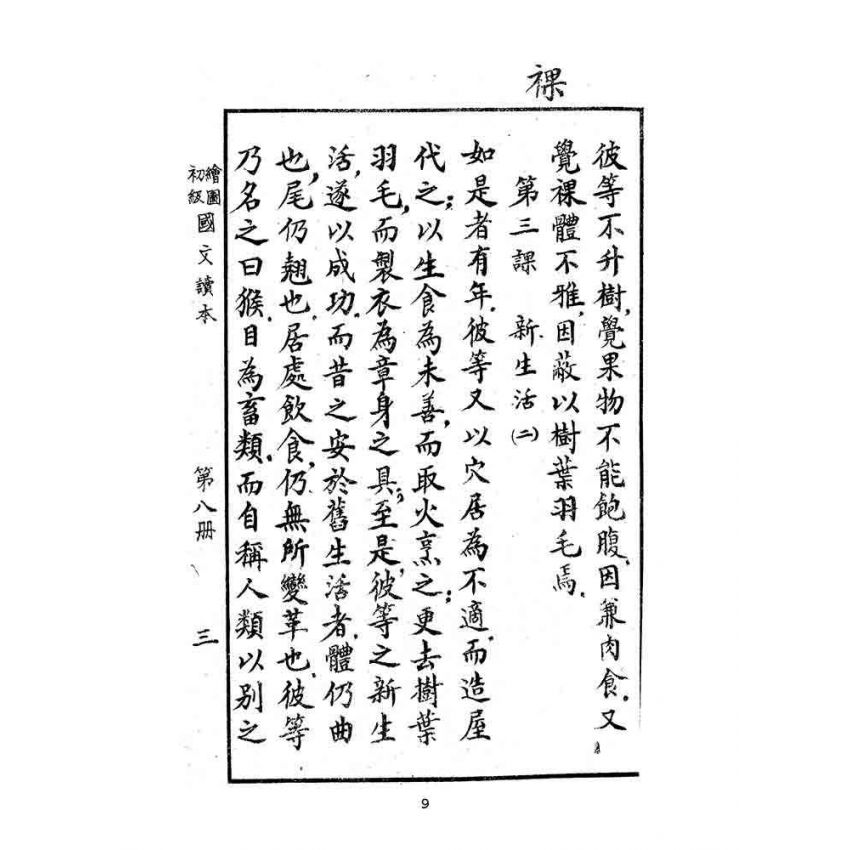 裸
彼等不升樹,覺果物不能飽腹,因兼肉食.又
覺裸體不雅,因蔽以樹葉羽毛焉.
第三課 新生活(二)
如是者有年.彼等又以穴居為不適,而造屋
代之;以生食為未善,而取火烹之;更去樹葉
羽毛,而製衣為章身之具;至是,彼等之新生
活,遂以成功.而昔之安於舊生活者,體仍曲
也,尾仍翹也.居處飲食,仍無所變革也.彼等
乃名之曰猴.目為畜類.而自稱人類以別之
繪圖初級國文讀本 第八册 三
9